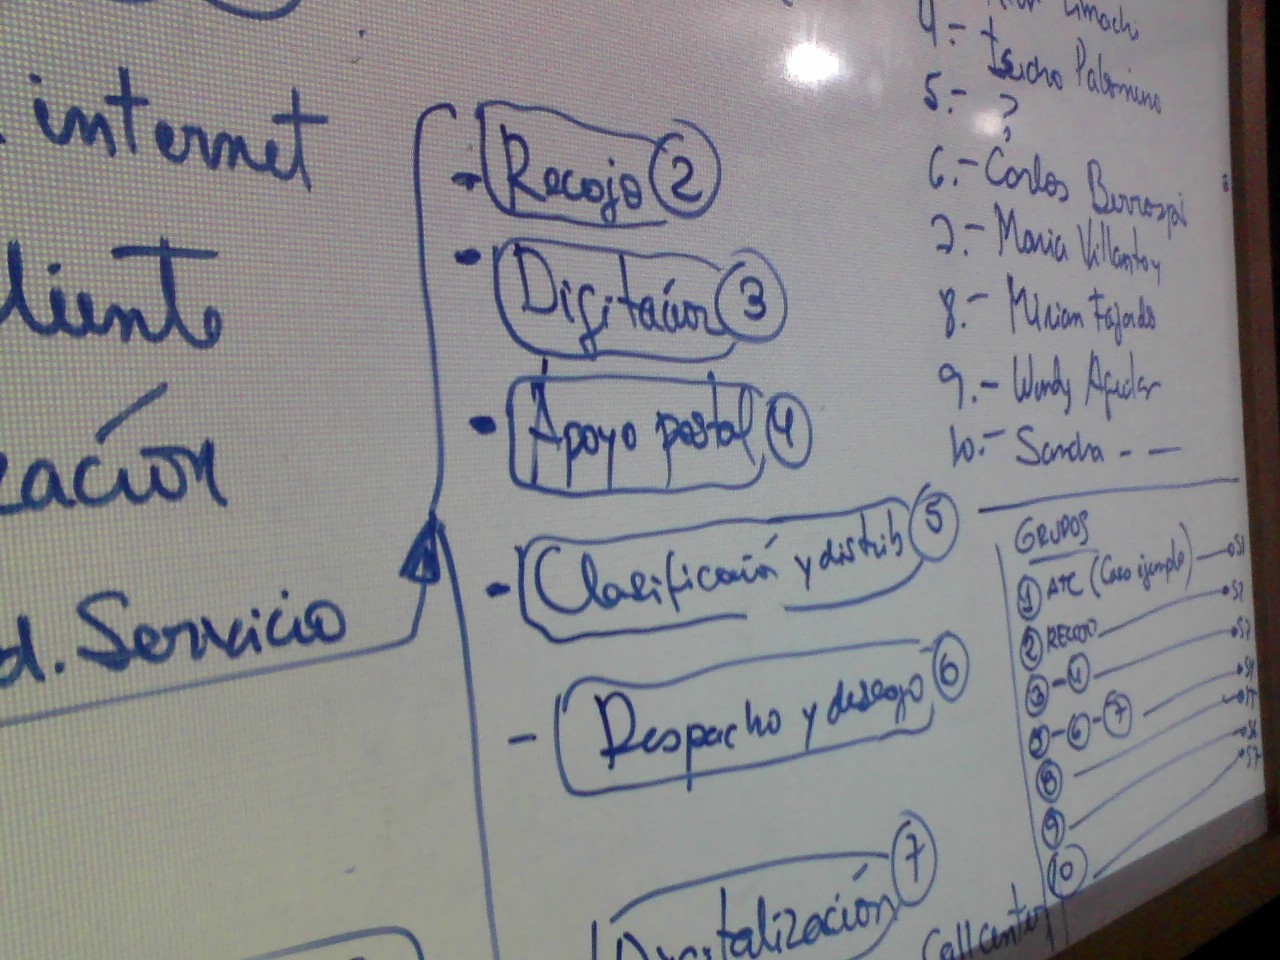 internet
liente
zación
d. Servicio
- Recojo 2
- Digitación 3
- Apoyo postal 4
- Clasificación y distrib 5
- Despacho y descargo 6
Digitalización 7
Call center
4.- Isidro Palomino
5.- ?
6.- Carlos Berrospi
7.- Maria Villantoy
8.- Mirian Fajardo
9.- Wendy Aguilar
10.- Sandra - -
GRUPOS
1 ATC (Caso ejemplo) S1
2 RECOJO S2
3 - 4 S3
5 - 6 - 7 S4
8 S5
9 S6
10 S7